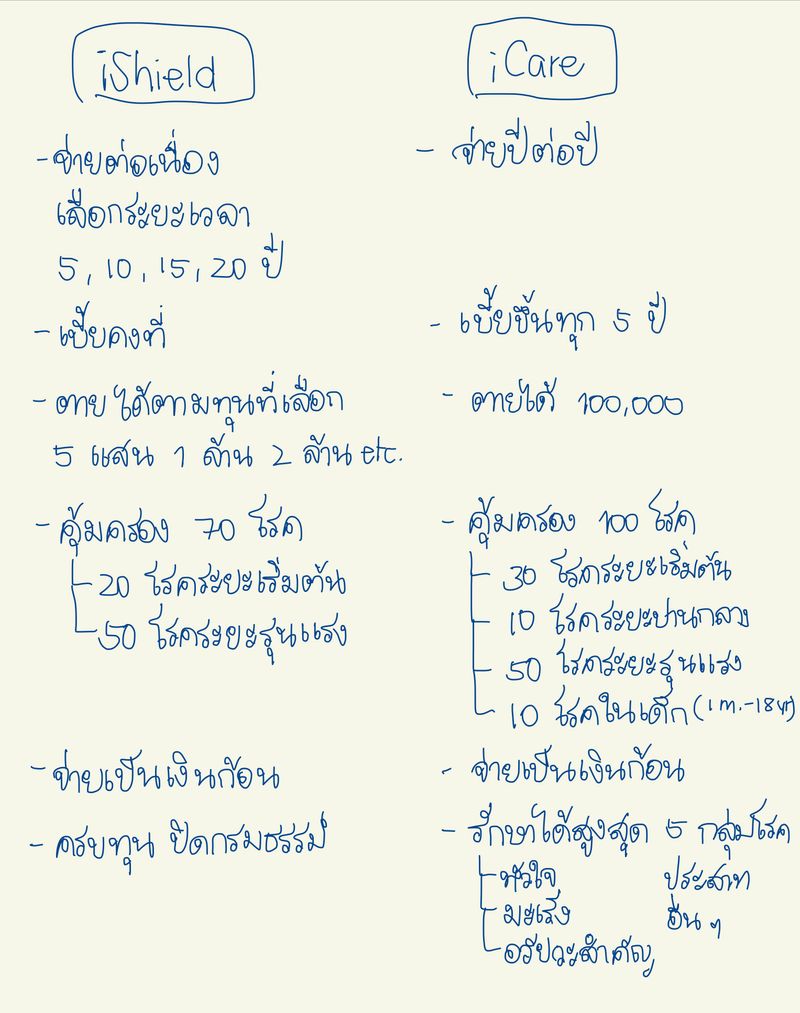 iShield
- จ่ายต่อเนื่อง
เลือกระยะเวลา
5, 10, 15, 20 ปี
- เบี้ยคงที่
- ตายได้ตามทุนที่เลือก
5 แสน 1 ล้าน 2 ล้าน etc.
- คุ้มครอง 70 โรค
20 โรคระยะเริ่มต้น
50 โรคระยะรุนแรง
- จ่ายเป็นเงินก้อน
- ครบทุน ปิดกรมธรรม์
iCare
- จ่ายปีต่อปี
- เบี้ยขึ้นทุก 5 ปี
- ตายได้ 100,000
- คุ้มครอง 100 โรค
30 โรคระยะเริ่มต้น
10 โรคระยะปานกลาง
50 โรคระยะรุนแรง
10 โรคในเด็ก (1 m.-18 yr)
- จ่ายเป็นเงินก้อน
- รักษาได้สูงสุด 5 กลุ่มโรค
หัวใจ ประสาท
มะเร็ง อื่นๆ
อวัยวะสำคัญ